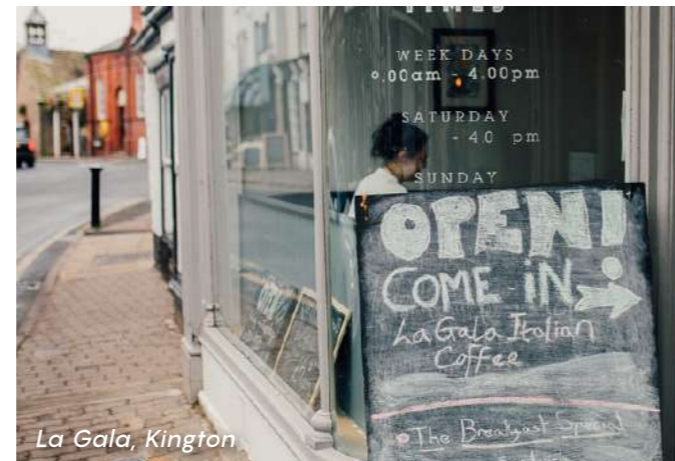 TIMES
WEEK DAYS
.00am - 4.00pm
SATURDAY
- 4.0 pm
SUNDAY
OPEN!
COME iN
La Gala Italian
Coffee
The Breakfast Special
La Gala, Kington